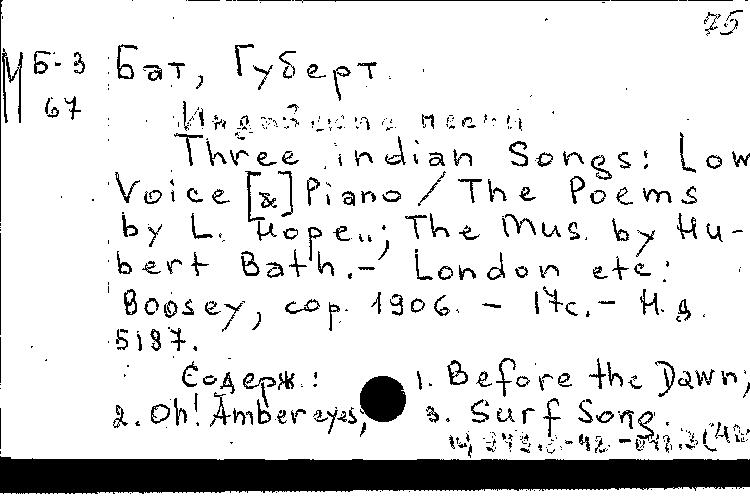 75
М Б-3 Бат, Губерт.
67
Индийские песни
Three indian Songs: Low
Voice [&] Piano / The Poems
by L. Hope..; The Mus. by Hu-
bert Bath.- London etc:
Boosey, cop. 1906. - 17c. - H. д.
5197.
Содерж.: 1. Before the Dawn;
2. Oh! Amber eyes; 3. Surf Song.